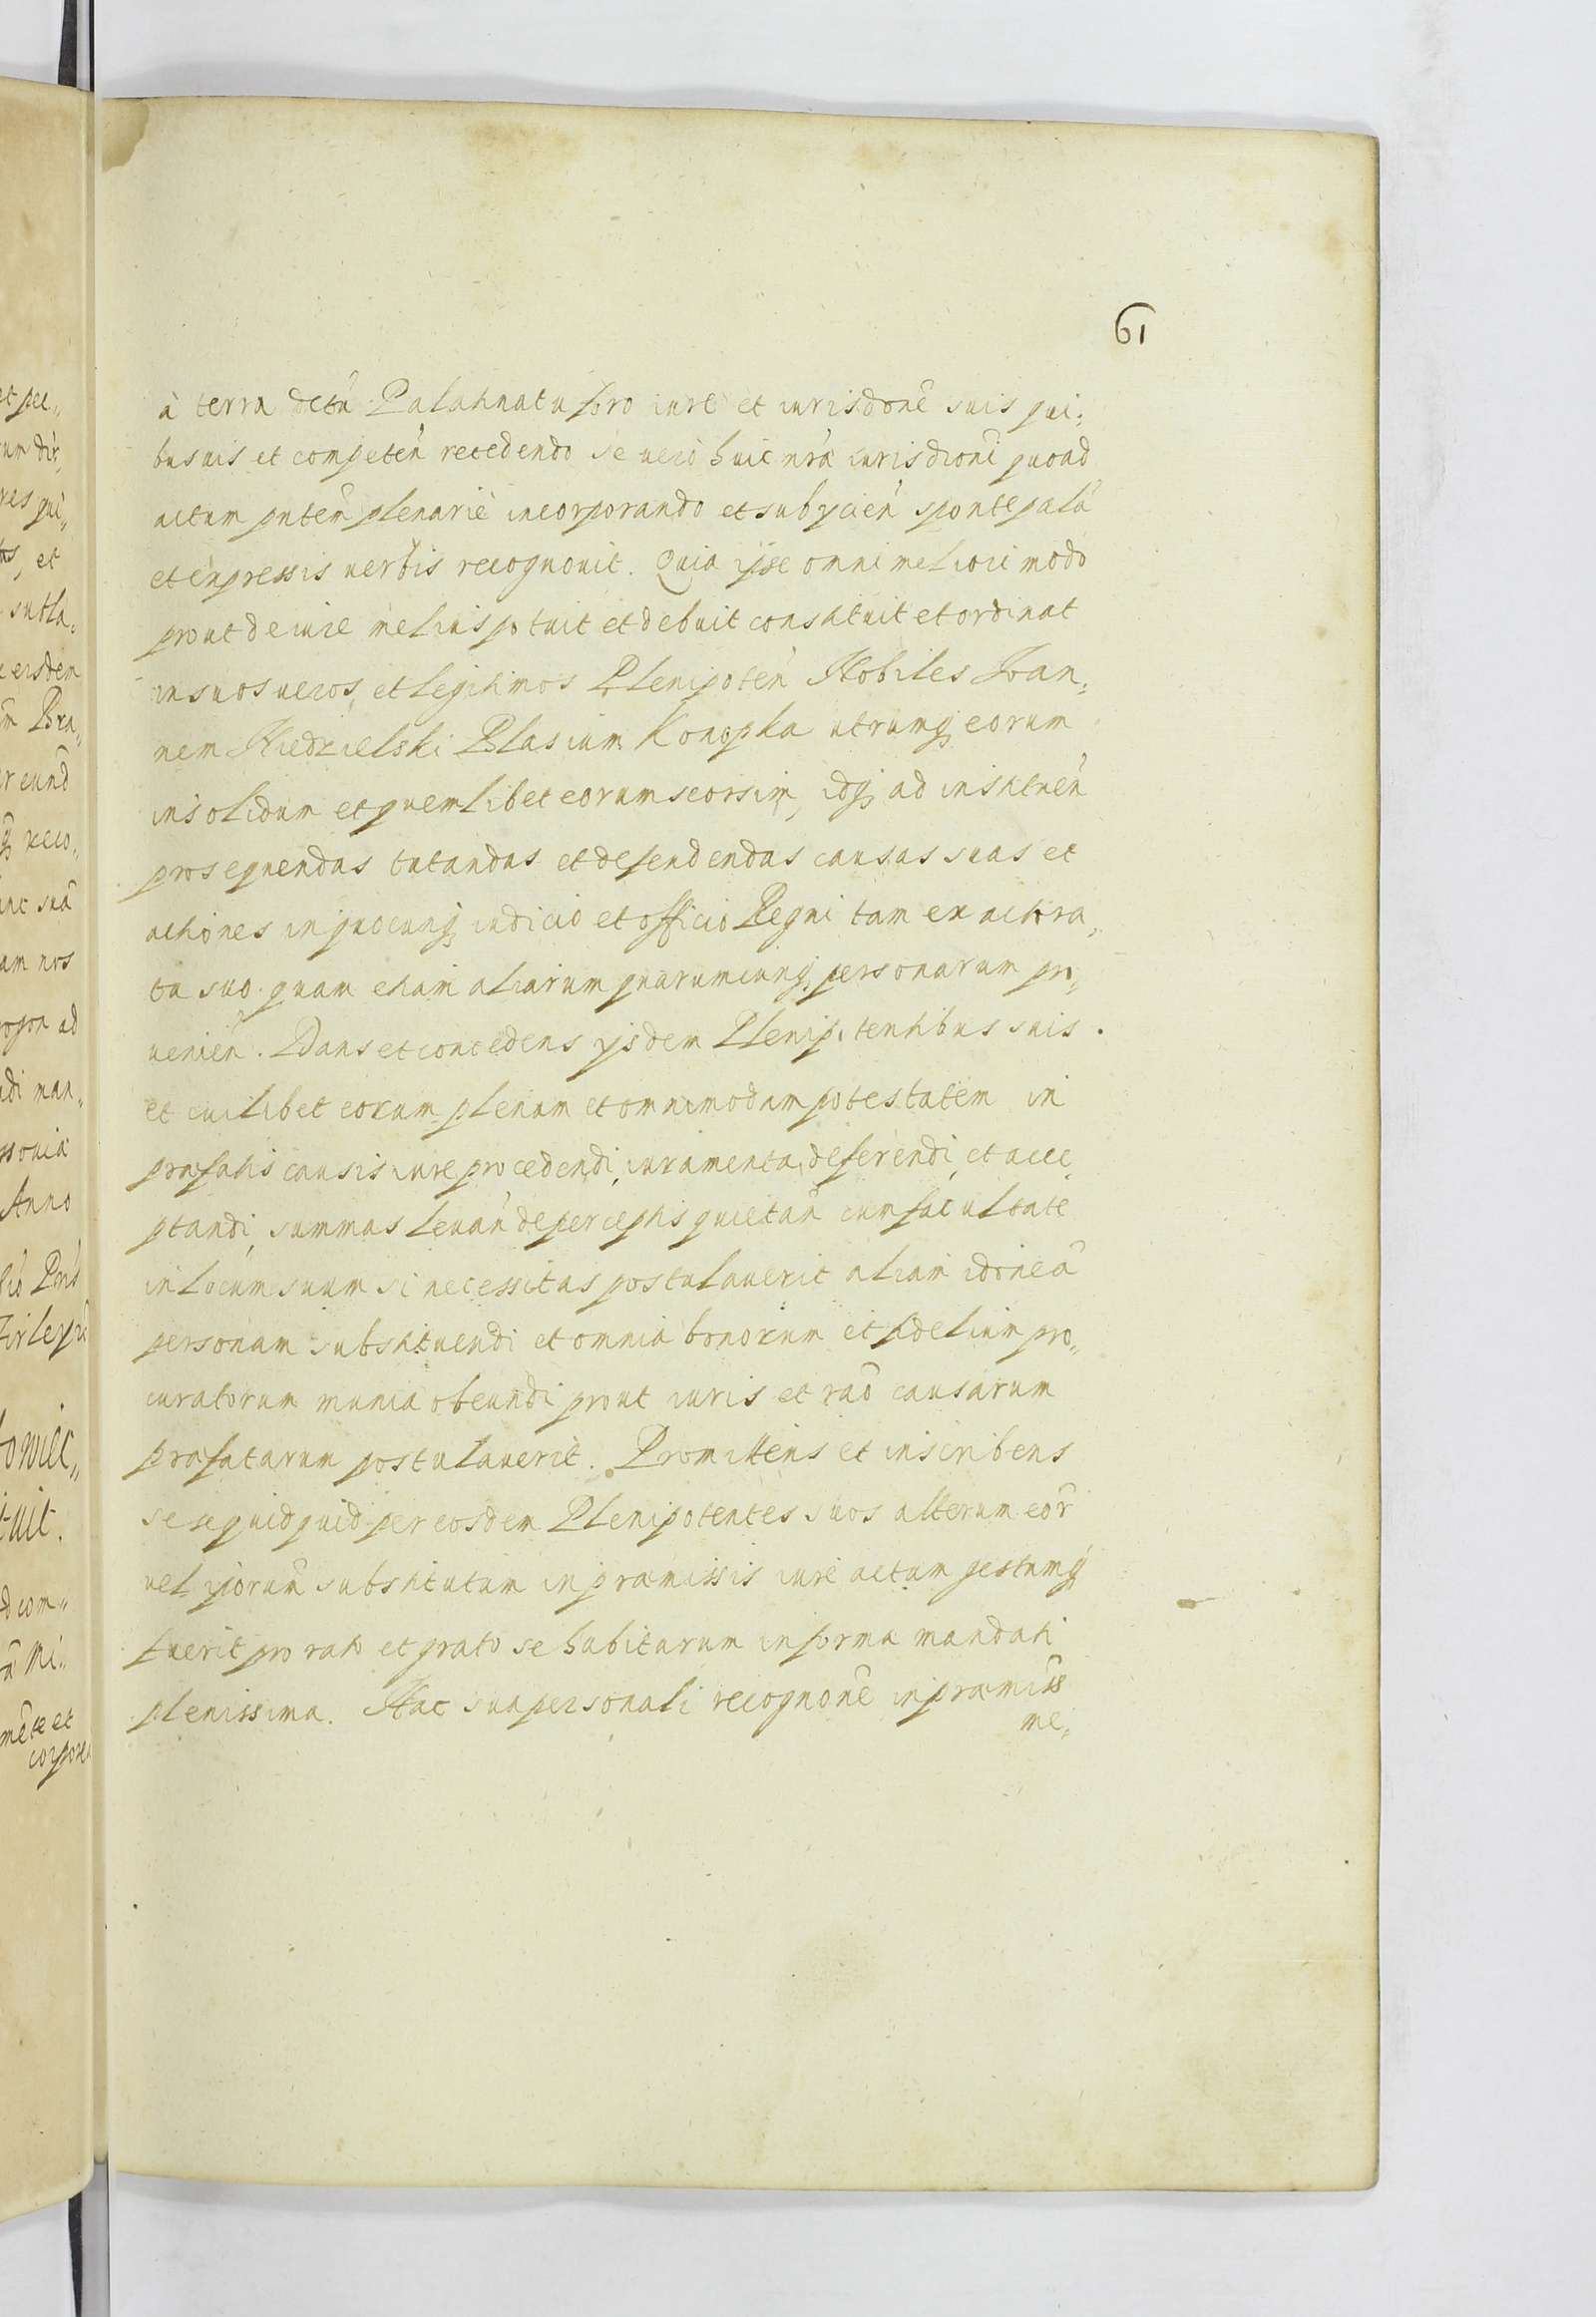 61
à terra dctũ Palatinatu foro iure et iurisdone suis qui,
busuis et competeñ recedendo se uero huic nrã iurisdioni quoad
actum pntem plenarie incorporando et subycień sponte palã
et expressis uerbis recognouit. Quia ipse omni meliori modo
prout de iure melius potuit et debuit constituit et ordinat
in suos ueros, et legitimos Plenipoteñ Nobiles Joan,
nem Niedzielski Blasium Konopka utrumq, eorum
insolidum et quemlibet eorum seorsim, idq, ad instituen
prosequendas tutandas et defendendas causas suas et
actiones in quocunq, iudicio et officio Regni tam ex actora,
tu suo quam etiam aliarum quarumcunq, personarum pro,
uenień. Dans et concedens ysdem Plenipotentibus suis.
et cuilibet eorum plenam et omnimodam potestatem in
præfatis causis iure procedendi, iuramenta, deferendi, et acce,
ptandi, summas leuań de perceptis quietań cum facultate
in locum suum si necessitas postulauerit aliam idoneã
personam substituendi et omnia bonorum et fidelium pro,
curatorum munia obeundi prout iuris et rão causarum
præfatarum postulauerit. Promittens et inscribens
sese quidquid per eosdem Plenipotentes suos alterum eor̃
uel ipsorum substitutum in præmissis iure actum gestumq,
fuerit pro rato et grato se habiturum in forma mandati
plenissima. Hac sua personali recognone in præmissis
me,